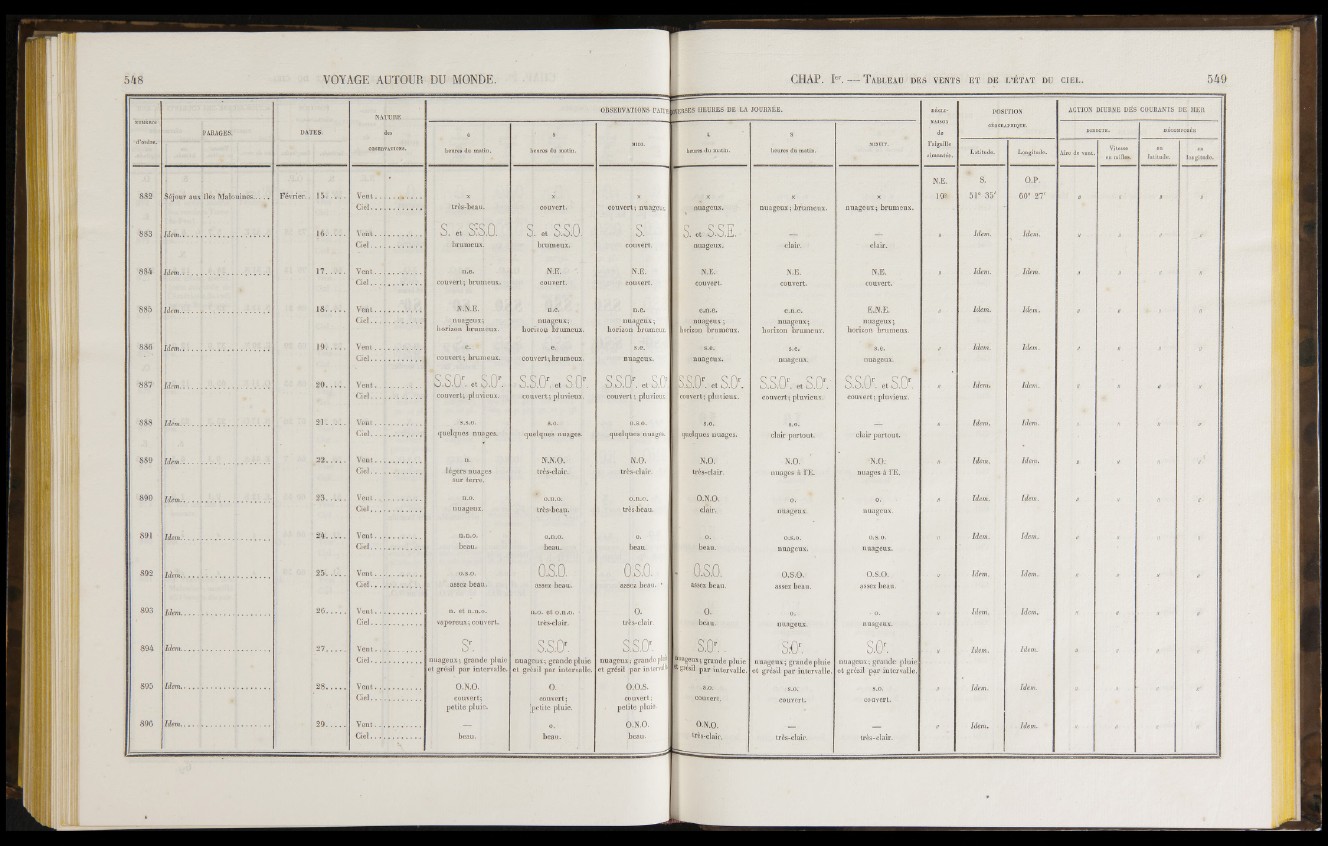 548 VOYAGE AUTOUR DU MONDE.
CHAP. Ier. — TABLEAU DES VENTS ET DE L'ÉTAT DU CIEL. 549
NUMÉROS d'ordre. PARAGES. DATES. NATURE des OBSERVATIONS.
OBSERVATIONS HEURES DE LA JOURNÉE.
4 heures du matin. 8 heures du matin. MIDI. 4 heures du matin. 8 heures du matin. MINUIT.
DÉCLINAISON de l'aiguille aimantée.
POSITION GÉOGRAPHIQUE.
Latitude. Longitude.
ACTION DIURNE DES COURANTS DE MER
DIRECTE. DÉCOMPOSÉE
Aire de vent. Vitesse en milles. en latitude. en longitude.
N.E. S. O.P.
882 Séjour aux îles Malouines..... Février.. 15..... Vent............ x x x x x x 19° 51° 35′ 60° 27′ " " " "
Ciel............ très-beau. couvert. couvert; nuageux. nuageux. nuageux; brumeux. nuageux; brumeux.
883 Idem. 16..... Vent............ S. et S.S.O. S. et S.S.O. S. S. et S.S.E. — — " Idem. Idem. " " " "
Ciel............ brumeux. brumeux. couvert. nuageux. clair. clair.
884 Idem. 17..... Vent............ n.e. N.E. N.E. N.E. N.E. N.E. " Idem. Idem. " " " "
Ciel............ couvert; brumeux. couvert. couvert. couvert. couvert. couvert.
885 Idem. 18..... Vent............ N.N.E. n.e. n.e. e.n.e. e.n.e. E.N.E. " Idem. Idem. " " " "
Ciel............ nuageux; nuageux; nuageux; nuageux; nuageux; nuageux;
horizon brumeux. horizon brumeux. horizon brumeux. horizon brumeux. horizon brumeux. horizon brumeux.
886 Idem. 19..... Vent............ e. e. s.e. s.e. s.e. s.e. " Idem. Idem. " " " "
Ciel............ couvert; brumeux. couvert; brumeux. nuageux. nuageux. nuageux. nuageux.
887 Idem. 20..... Vent............ S.S.Or. et S.Or. S.S.Or. et S.Or S.S.Or. et S.Or S.S.Or. et S.Or. S.S.Or. et S.Or. S.S.Or. et S.Or. " Idem. Idem. " " " "
Ciel............ couvert; pluvieux. couvert; pluvieux. couvert; pluvieux. couvert; pluvieux. couvert; pluvieux. couvert; pluvieux.
888 Idem. 21..... Vent............ s.s.o. s.o. o.s.o. s.o. s.o. — " Idem. Idem. " " " "
Ciel............ quelques nuages. quelques nuages. quelques nuages. quelques nuages. clair partout. clair partout.
889 Idem. 22..... Vent............ n. N.N.O. N.O. N.O. N.O. N.O. " Idem. Idem. " " " "
Ciel............ légers nuages très-clair. très-clair. très-clair. nuages à l'E. nuages à l'E.
sur terre.
890 Idem. 23..... Vent............ n.o. o.n.o. o.n.o. O.N.O. o. o. " Idem. Idem. " " " "
Ciel............ nuageux. très-beau. très-beau. clair. nuageux. nuageux.
891 Idem. 24..... Vent............ n.n.o. o.n.o. o. o. o.s.o. o.s.o. " Idem. Idem. " " " "
Ciel............ beau. beau. beau. beau. nuageux. nuageux.
892 Idem. 25..... Vent............ o.s.o. O.S.O. O.S.O. O.S.O. O.S.O. O.S.O. " Idem. Idem. " " " "
Ciel............ assez beau. assez beau. assez beau. assez beau. assez beau. assez beau.
893 Idem. 26..... Vent............ n. et n.n.o. n.o. et o.n.o. O. O. o. o. " Idem. Idem. " " " "
Ciel............ vaporeux; couvert. très-clair. très-clair. beau. nuageux. nuageux.
894 Idem. 27..... Vent............ Sr. S.S.Or. S.S.Or. S.Or. S.Or. S.Or. " Idem. Idem. " " " "
Ciel............ nuageux; grande pluie nuageux; grande pluie nuageux; grande pluie nuageux; grande pluie nuageux; grande pluie nuageux; grande pluie
et grésil par intervalle. et grésil par intervalle. et grésil par intervalle. et grésil par intervalle. et grésil par intervalle. et grésil par intervalle.
895 Idem. 28..... Vent............ O.N.O. O. O.O.S. s.o. s.o. s.o. " Idem. Idem. " " " "
Ciel............ couvert; couvert; couvert; couvert. couvert. couvert.
petite pluie. petite pluie. petite pluie.
896 Idem. 29..... Vent............ — o. O.N.O. O.N.O. — — " Idem. Idem. " " " "
Ciel............ beau. beau. beau. très-clair. très-clair. très-clair.